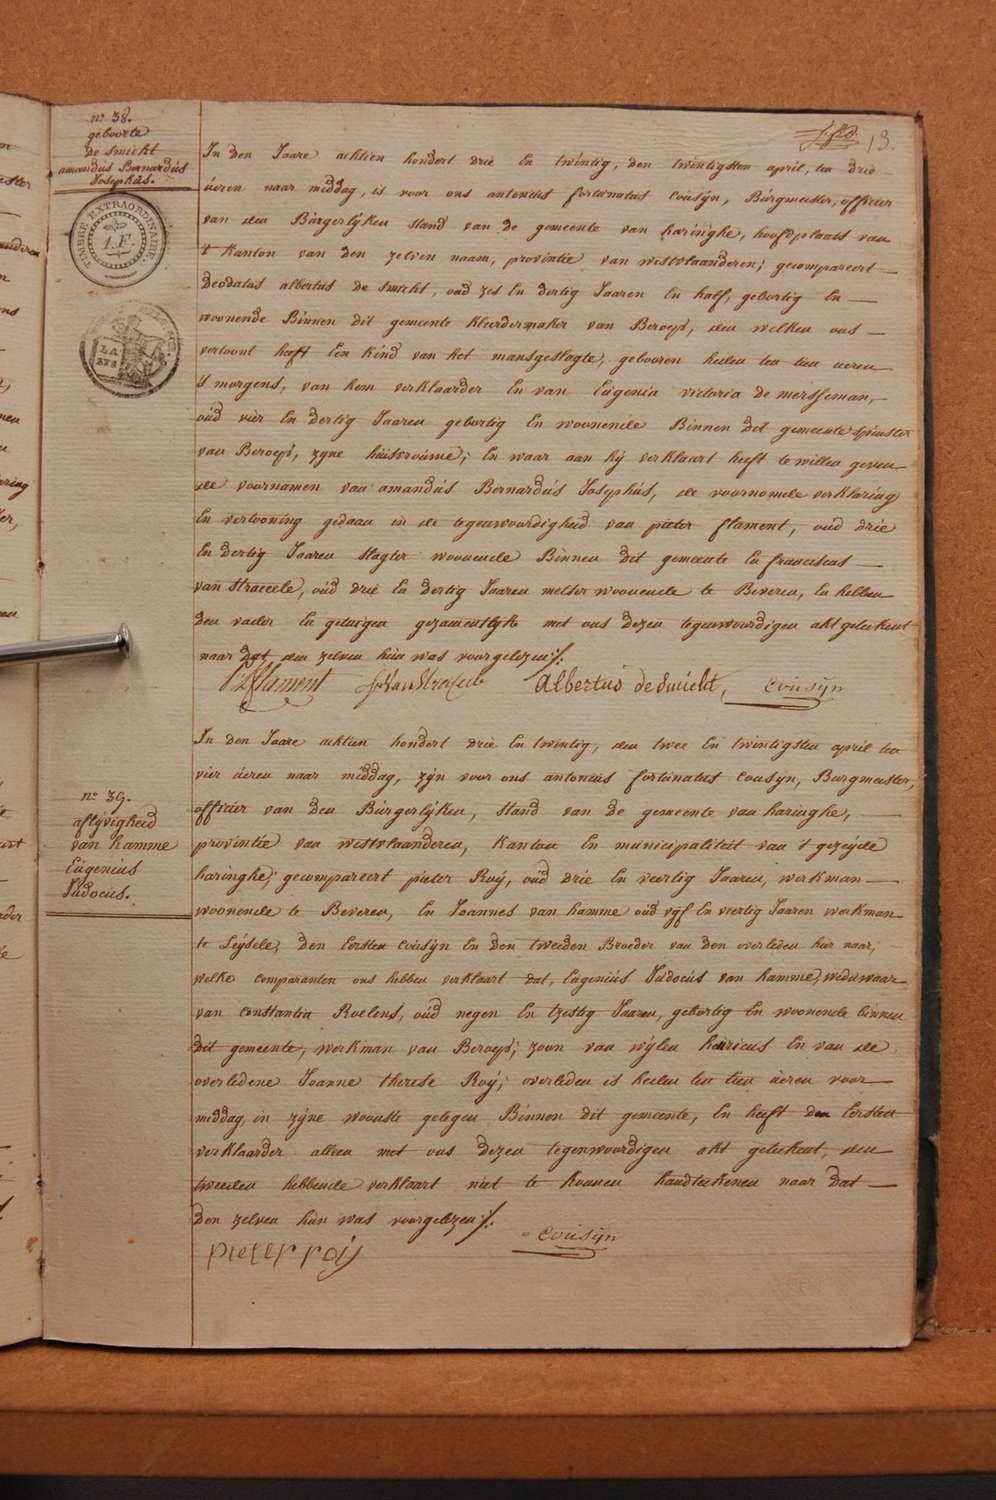 13.
no. 38.
geboorte
de smicht
amandús Bernardús
Josephús.
TIMBRE EXTRAORDINAIRE.
1. F.
In den Jaare achtien hondert drie En twintig, den twintigsten april, ten drie
úeren naar middag, is voor ons antonius fortunatus Cousÿn, Búrgmeester, officier
van den Búrgerlÿken stand van de gemeente van haringhe, hoofdplaats van
't kanton van den zelven naam, provintie van westvlaanderen; gecompareert
Deodatus albertus de smicht, oud zes En dertig Jaaren En half, gebortig En
woonende Binnen dit gemeente kleerdermaker van Beroep, den welken ons
vertoont heeft Een kind van het mansgeslagte, gebooren heden ten tien ueren
's morgens, van hem verklaarder En van Eugenia victoria de mersseman,
oúd vier En dertig Jaaren gebortig En woonende Binnen dit gemeente spinster
van Beroep, zyne húisvroúwe; En waar aan hÿ verklaart heeft te willen geven
de voornamen van amandús Bernardús Josephús, de voornomde verklaring
En vertooning gedaan in de tegenwoordigheid van pieter flament, oud drie
En dertig Jaaren slagter woonende Binnen dit gemeente En franciscus
van Straceele, oúd drie En dertig Jaaren melser woonende te Beveren, En hebben
den vader En getuigen gezamentlyk met ons dezen tegenwoordigen akt geteekent
naar dat den zelven hún was voorgelezen ./.
P. Flament f. van Straceele Albertus de Smicht, Cousÿn
no. 39.
aflÿvigheid
van hamme
Eúgeniús
Judocús.
In den Jaare achtien hondert drie En twintig, den twee En twintigsten april ten
vier úeren naar middag, zÿn voor ons antonius fortunatus Cousÿn, Burgmeester,
officier van den Búrgerlÿken, stand van de gemeente van haringhe,
provintie van westvlaanderen, kanton En municipaliteit van 't gezeÿde
haringhe; gecompareert pieter Roÿ, oúd drie En veertig Jaaren, werkman
woonende te Beveren, En Joannes van hamme oúd vÿf En veertig Jaaren werkman
te Leÿsele, den Eersten Cousÿn En den tweeden Broeder van den overleden hier naar,
welke comparanten ons hebben verklaart dat, Eugeniús Judocús van hamme, weduwaar
van Constantia Roelens, oúd negen En tzestig Jaaren, gebortig En woonende binnen
dit gemeente, werkman van Beroep; zoon van wÿlen henricus En van de
overledene Joanne therese Roÿ; overleden is heden ten tien úeren voor
middag, in zÿne woonste gelegen Binnen dit gemeente, En heeft den Eersten
verklaarder alleen met ons dezen tegenwoordigen akt geteekent, den
tweeden hebbende verklaart niet te konnen handteekenen naar dat
den zelven hún was voorgelezen ./.
pieter roÿ Cousÿn